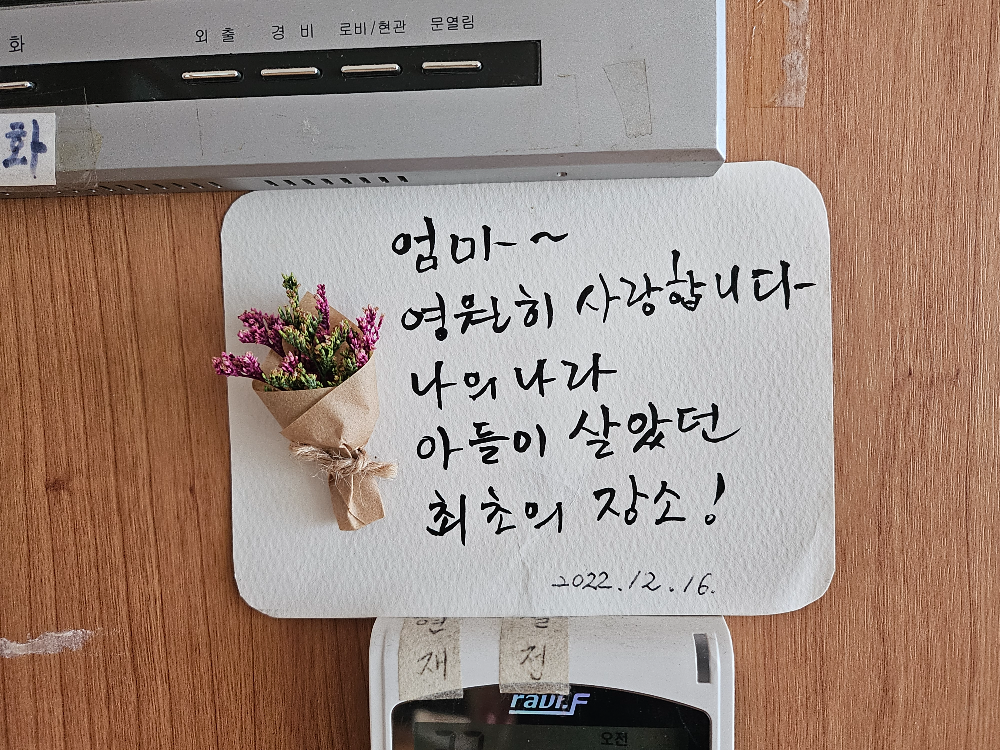 화
외 출 경 비 로비/현관 문열림
화
엄마~
영원히 사랑합니다
나의 나라
아들이 살았던
최초의 장소!
2022.12.16.
현재
전
오전